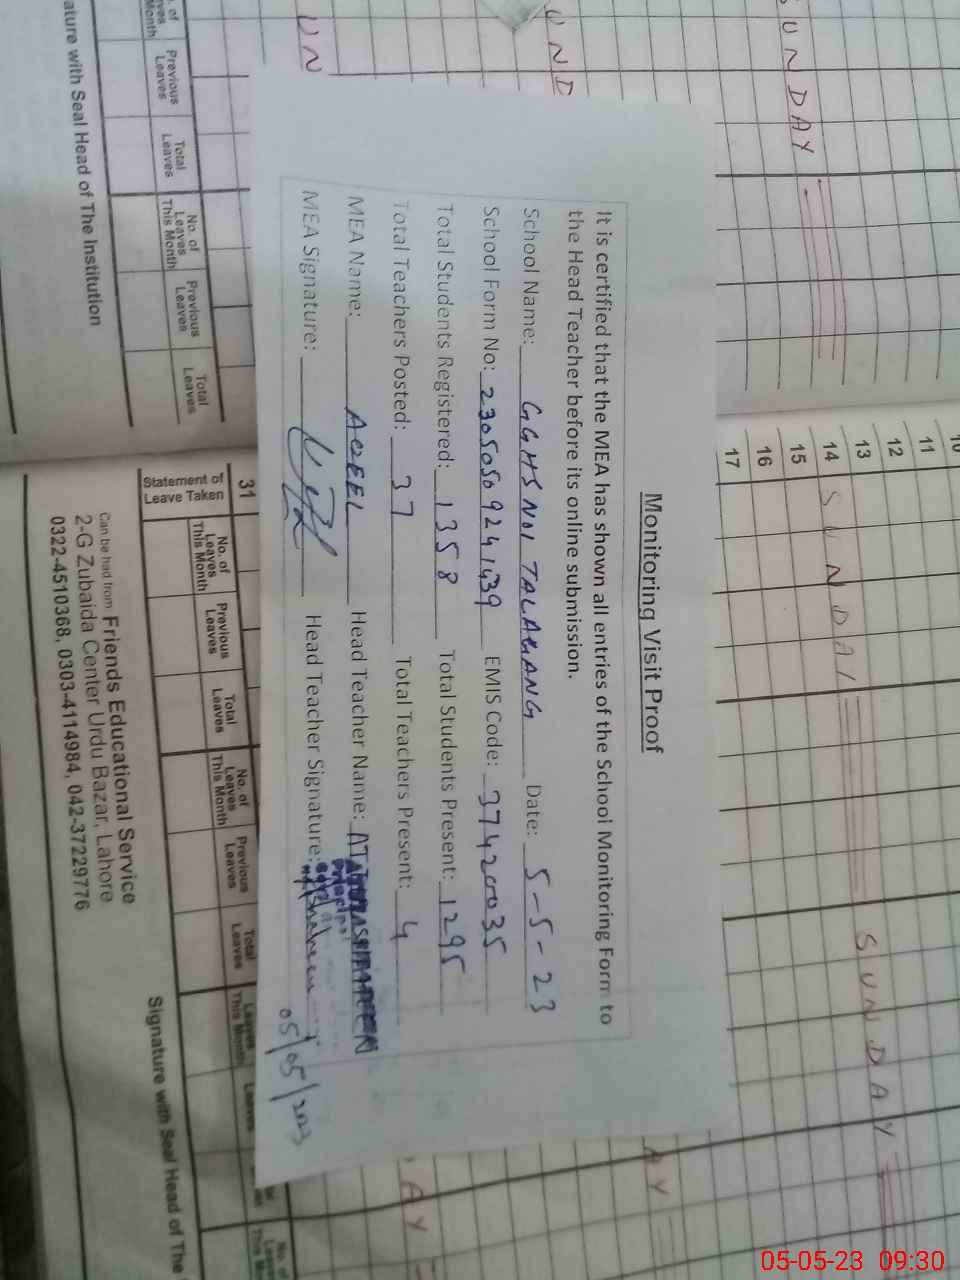 Monitoring Visit Proof
It is certified that the MEA has shown all entries of the School Monitoring Form to
the Head Teacher before its online submission.
School Name: GGHS NO1 TALAGANG Date: 5-5-23
School Form No: 23050509241439 EMIS Code: 37420035
Total Students Registered: 1358 Total Students Present: 1295
Total Teachers Posted: 37 Total Teachers Present: 4
MEA Name: AQEEL Head Teacher Name:
MEA Signature: Head Teacher Signature:
05/05/2023
SUNDAY
UND
UN
No. of Leaves This Month
Previous Leaves
Total Leaves
No. of Leaves This Month
Previous Leaves
Total Leaves
ature with Seal Head of The Institution
10
11
12
13
14 SUNDAY
15
16
17
SUNDAY
AY
AY
31
Statement of Leave Taken
No. of Leaves This Month
Previous Leaves
Total Leaves
No. of Leaves This Month
Previous Leaves
Total Leaves
Leaves This Month
Leaves
No. of Leaves This M
Signature with Seal Head of The
Can be had from Friends Educational Service
2-G Zubaida Center Urdu Bazar, Lahore
0322-4510368, 0303-4114984, 042-37229776
05-05-23 09:30